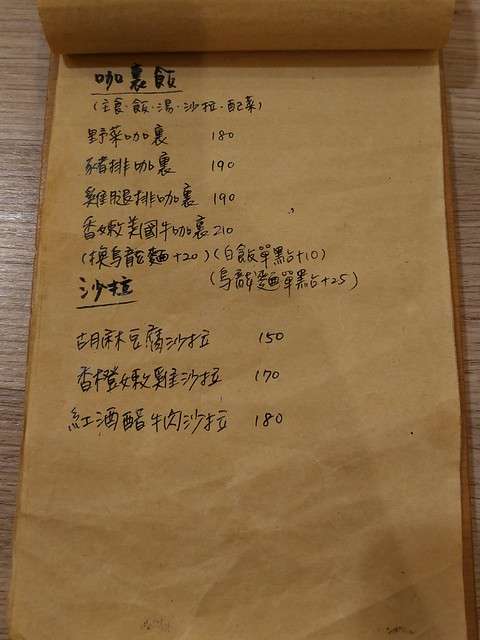 咖裏飯
(主食·飯·湯·沙拉·配菜)
野菜咖裏 180
豬排咖裏 190
雞腿排咖裏 190
香嫩美國牛咖裏 210
(換烏龍麵+20)(白飯單點+10)
(烏龍麵單點+25)
沙拉
胡麻豆腐沙拉 150
香橙嫩雞沙拉 170
紅酒醋牛肉沙拉 180